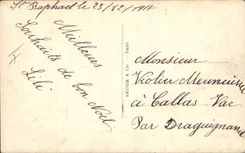 St Raphael le 23/12/1917
Meilleurs
Souhaits de bon Noël
Lili
Monsieur
Victor Meunier
à Callas Var
Par Draguignan